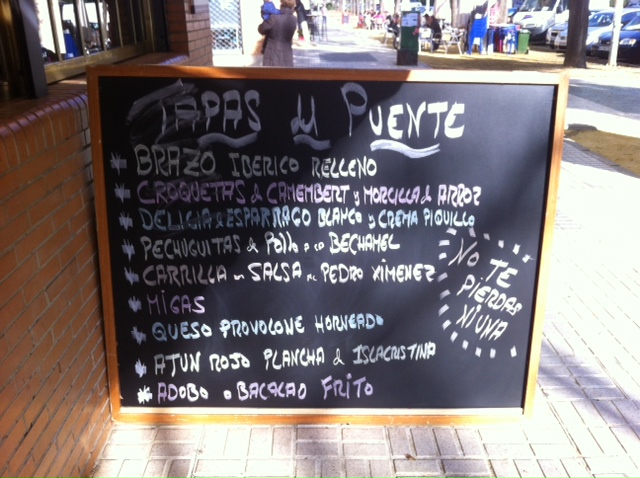 TAPAS del PUENTE
* BRAZO IBERICO RELLENO
* CROQUETAS de CAMEMBERT y MORCILLA de ARROZ
* DELICIA de ESPARRAGO BLANCO y CREMA PIQUILLO
* PECHUGUITAS de POLLO a la BECHAMEL
* CARRILLA en SALSA de PEDRO XIMENEZ
* MIGAS
* QUESO PROVOLONE HORNEADO
* ATUN ROJO PLANCHA de ISLACRISTINA
* ADOBO o BACALAO FRITO
NO TE
PIERDAS
NIUNA